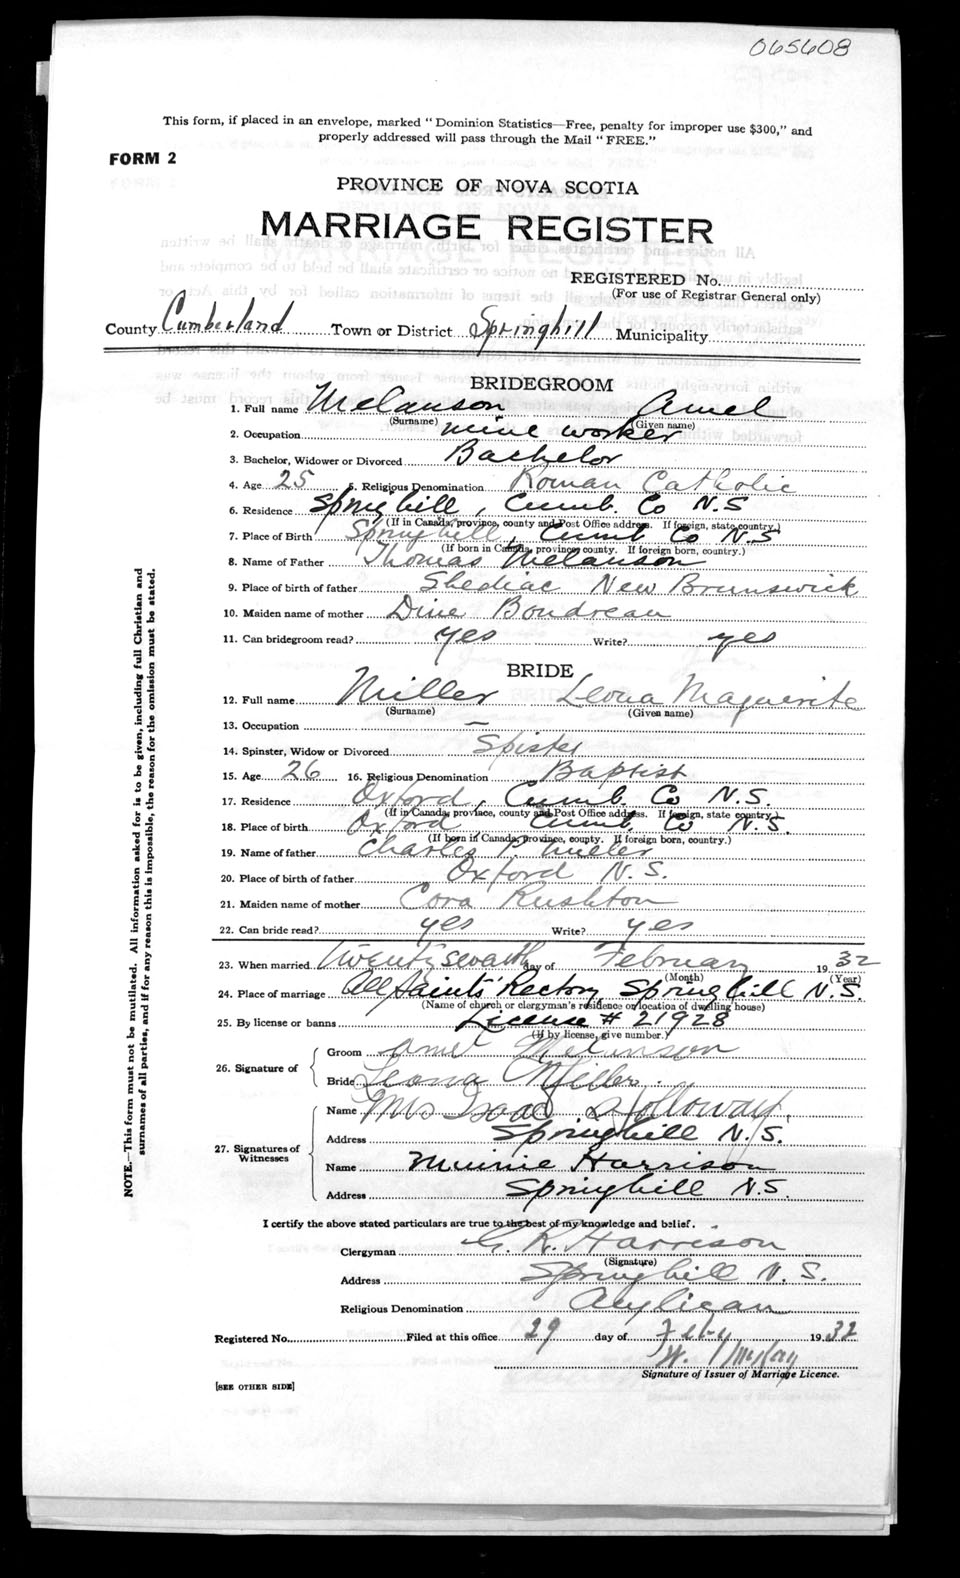 065608
This form, if placed in an envelope, marked "Dominion Statistics—Free, penalty for improper use $300," and
properly addressed will pass through the Mail "FREE."
FORM 2
PROVINCE OF NOVA SCOTIA
MARRIAGE REGISTER
REGISTERED No.
(For use of Registrar General only)
County Cumberland Town or District Springhill Municipality
BRIDEGROOM
1. Full name Melanson Amel
(Surname) (Given name)
2. Occupation mine worker
3. Bachelor, Widower or Divorced Bachelor
4. Age 25 5. Religious Denomination Roman Catholic
6. Residence Springhill, Cumb. Co N.S
(If in Canada, province, county and Post Office address. If foreign, state country.)
7. Place of Birth Springhill, Cumb Co N.S
(If born in Canada, province, county. If foreign born, country.)
8. Name of Father Thomas Melanson
9. Place of birth of father Shediac New Brunswick
10. Maiden name of mother Dine Boudreau
11. Can bridegroom read? yes Write? yes
BRIDE
12. Full name Miller Leona Maguerite
(Surname) (Given name)
13. Occupation —
14. Spinster, Widow or Divorced Spister
15. Age 26 16. Religious Denomination Baptist
17. Residence Oxford, Cumb. Co N.S.
(If in Canada, province, county and Post Office address. If foreign, state country.)
18. Place of birth Oxford Cumb. Co N.S.
(If born in Canada, province, county. If foreign born, country.)
19. Name of father Charles P. Miller
20. Place of birth of father Oxford N.S.
21. Maiden name of mother Cora Rushton
22. Can bride read? yes Write? yes
23. When married Twenty sevanth day of February 1932
(Month) (Year)
24. Place of marriage All Saints' Rectory, Springhill N.S.
(Name of church or clergyman's residence or location of dwelling house)
25. By license or banns License # 21928
(If by license, give number.)
26. Signature of
Groom Amel Melanson
Bride Leona Miller.
27. Signatures of Witnesses
Name Mrs Isaac Holloway.
Address Springhill N.S.
Name Minnie Harrison
Address Springhill N.S.
I certify the above stated particulars are true to the best of my knowledge and belief.
Clergyman G. R. Harrison
(Signature)
Address Springhill N.S.
Religious Denomination Anglican
Registered No. Filed at this office 29 day of Feby 1932
W. McKay
Signature of Issuer of Marriage Licence.
[SEE OTHER SIDE]
NOTE.—This form must not be mutilated. All information asked for is to be given, including full Christian and
surnames of all parties, and if for any reason this is impossible, the reason for the omission must be stated.